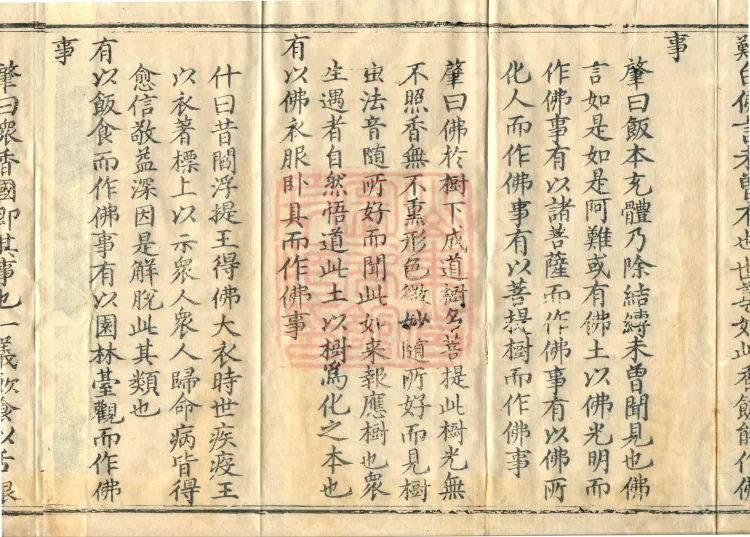 難白佛言未曾有也世尊如此香飯能作佛
事
肇曰飯本充體乃除結縛未曾聞見也佛
言如是如是阿難或有佛土以佛光明而
作佛事有以諸菩薩而作佛事有以佛所
化人而作佛事有以菩提樹而作佛事
肇曰佛於樹下成道樹名菩提此樹光無
不照香無不熏形色微妙隨所好而見樹
出法音隨所好而聞此如来報應樹也衆
生遇者自然悟道此土以樹為化之本也
有以佛衣服卧具而作佛事
什曰昔閻浮提王得佛大衣時世疾疫王
以衣著標上以示眾人眾人歸命病皆得
愈信敬益深因是解脫此其類也
有以飯食而作佛事有以園林臺觀而作佛
事
肇曰眾香國即其事也一義以舌根